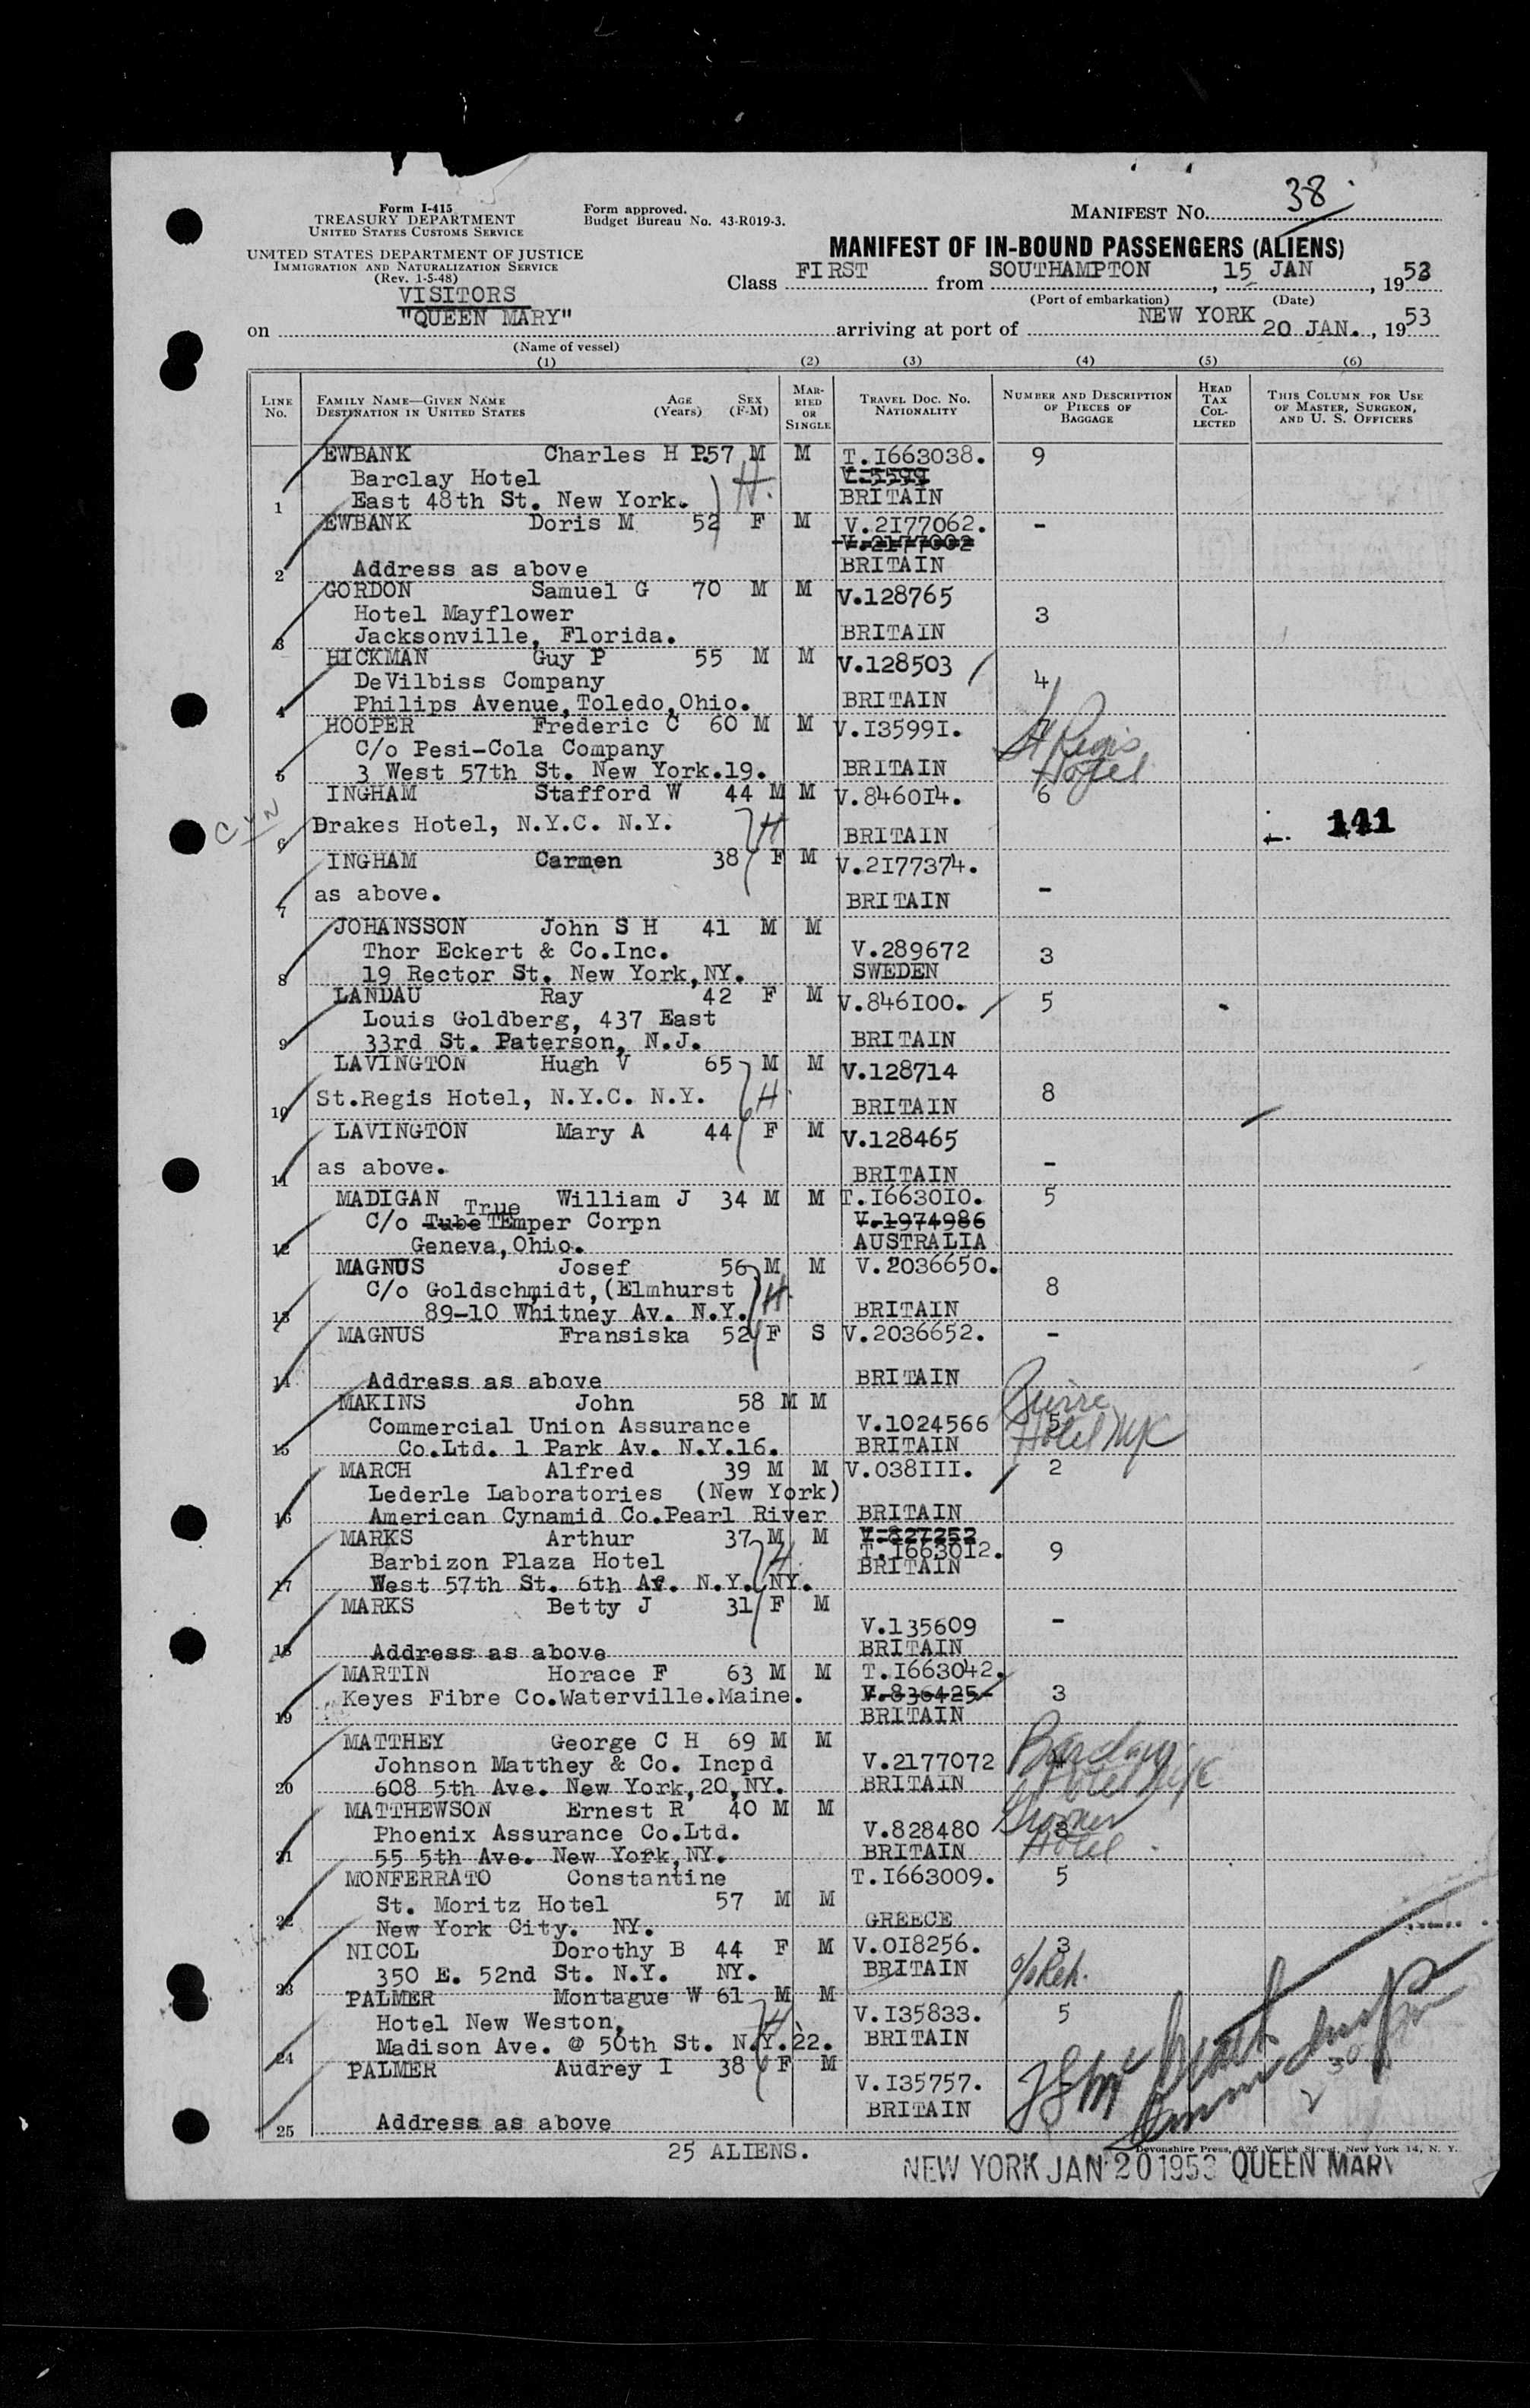 38
Form I-415
TREASURY DEPARTMENT
UNITED STATES CUSTOMS SERVICE
Form approved.
Budget Bureau No. 43-R019-3.
MANIFEST NO.
UNITED STATES DEPARTMENT OF JUSTICE
IMMIGRATION AND NATURALIZATION SERVICE
(Rev. 1-5-48)
MANIFEST OF IN-BOUND PASSENGERS (ALIENS)
Class FIRST from SOUTHAMPTON, 15 JAN, 1953
(Port of embarkation) (Date)
VISITORS
on "QUEEN MARY" arriving at port of NEW YORK 20 JAN., 1953
(Name of vessel)
(1) (2) (3) (4) (5) (6)
LINE No. FAMILY NAME—GIVEN NAME DESTINATION IN UNITED STATES AGE (Years) SEX (F-M) MARRIED OR SINGLE TRAVEL DOC. NO. NATIONALITY NUMBER AND DESCRIPTION OF PIECES OF BAGGAGE HEAD TAX COLLECTED THIS COLUMN FOR USE OF MASTER, SURGEON, AND U. S. OFFICERS
EWBANK Charles H P. 57 M M T.1663038. 9
Barclay Hotel H. V.5599
1 East 48th St. New York. BRITAIN
EWBANK Doris M 52 F M V.2177062. -
V.2177002
2 Address as above BRITAIN
GORDON Samuel G 70 M M V.128765
Hotel Mayflower 3
3 Jacksonville, Florida. BRITAIN
HICKMAN Guy P 55 M M V.128503
DeVilbiss Company 4
4 Philips Avenue,Toledo,Ohio. BRITAIN
HOOPER Frederic C 60 M M V.135991.
C/o Pesi-Cola Company St Regis
5 3 West 57th St. New York.19. BRITAIN Hotel
INGHAM Stafford W 44 M M V.846014. 6
6 Drakes Hotel, N.Y.C. N.Y. H BRITAIN 141
INGHAM Carmen 38 F M V.2177374.
7 as above. BRITAIN -
JOHANSSON John S H 41 M M
Thor Eckert & Co.Inc. V.289672 3
8 19 Rector St. New York,NY. SWEDEN
LANDAU Ray 42 F M V.846100. 5
Louis Goldberg, 437 East
9 33rd St. Paterson, N.J. BRITAIN
LAVINGTON Hugh V 65 M M V.128714
10 St.Regis Hotel, N.Y.C. N.Y. H BRITAIN 8
LAVINGTON Mary A 44 F M V.128465
11 as above. BRITAIN -
MADIGAN William J 34 M M T.1663010. 5
True
C/o Tube TEmper Corpn V.1974986
12 Geneva,Ohio. AUSTRALIA
MAGNUS Josef 56 M M V.2036650.
C/o Goldschmidt,(Elmhurst H. 8
13 89-10 Whitney Av. N.Y. BRITAIN
MAGNUS Fransiska 52 F S V.2036652. -
14 Address as above BRITAIN
MAKINS John 58 M M
Commercial Union Assurance V.1024566 5
15 Co.Ltd. 1 Park Av. N.Y.16. BRITAIN Hotel NYC
MARCH Alfred 39 M M V.038111. 2
Lederle Laboratories (New York)
16 American Cynamid Co.Pearl River BRITAIN
MARKS Arthur 37 M M V.827252
Barbizon Plaza Hotel H. T.1663012. 9
17 West 57th St. 6th Av. N.Y. NY. BRITAIN
MARKS Betty J 31 F M
V.135609 -
18 Address as above BRITAIN
MARTIN Horace F 63 M M T.1663042.
Keyes Fibre Co.Waterville.Maine. V.836425 3
19 BRITAIN
MATTHEY George C H 69 M M
Johnson Matthey & Co. Incpd V.2177072 4 Barclay
20 608 5th Ave. New York,20,NY. BRITAIN Hotel NYC
MATTHEWSON Ernest R 40 M M
Phoenix Assurance Co.Ltd. V.828480 3
21 55 5th Ave. New York,NY. BRITAIN Hotel
MONFERRATO Constantine T.1663009. 5
St. Moritz Hotel 57 M M
22 New York City. NY. GREECE
NICOL Dorothy B 44 F M V.018256. 3
350 E. 52nd St. N.Y. NY. BRITAIN
23
PALMER Montague W 61 M M
Hotel New Weston, H V.135833. 5
24 Madison Ave. @ 50th St. N.Y.22. BRITAIN
PALMER Audrey I 38 F M
V.135757.
25 Address as above BRITAIN
25 ALIENS.
Devonshire Press, 225 Varick Street, New York 14, N. Y.
NEW YORK JAN 20 1953 QUEEN MARY